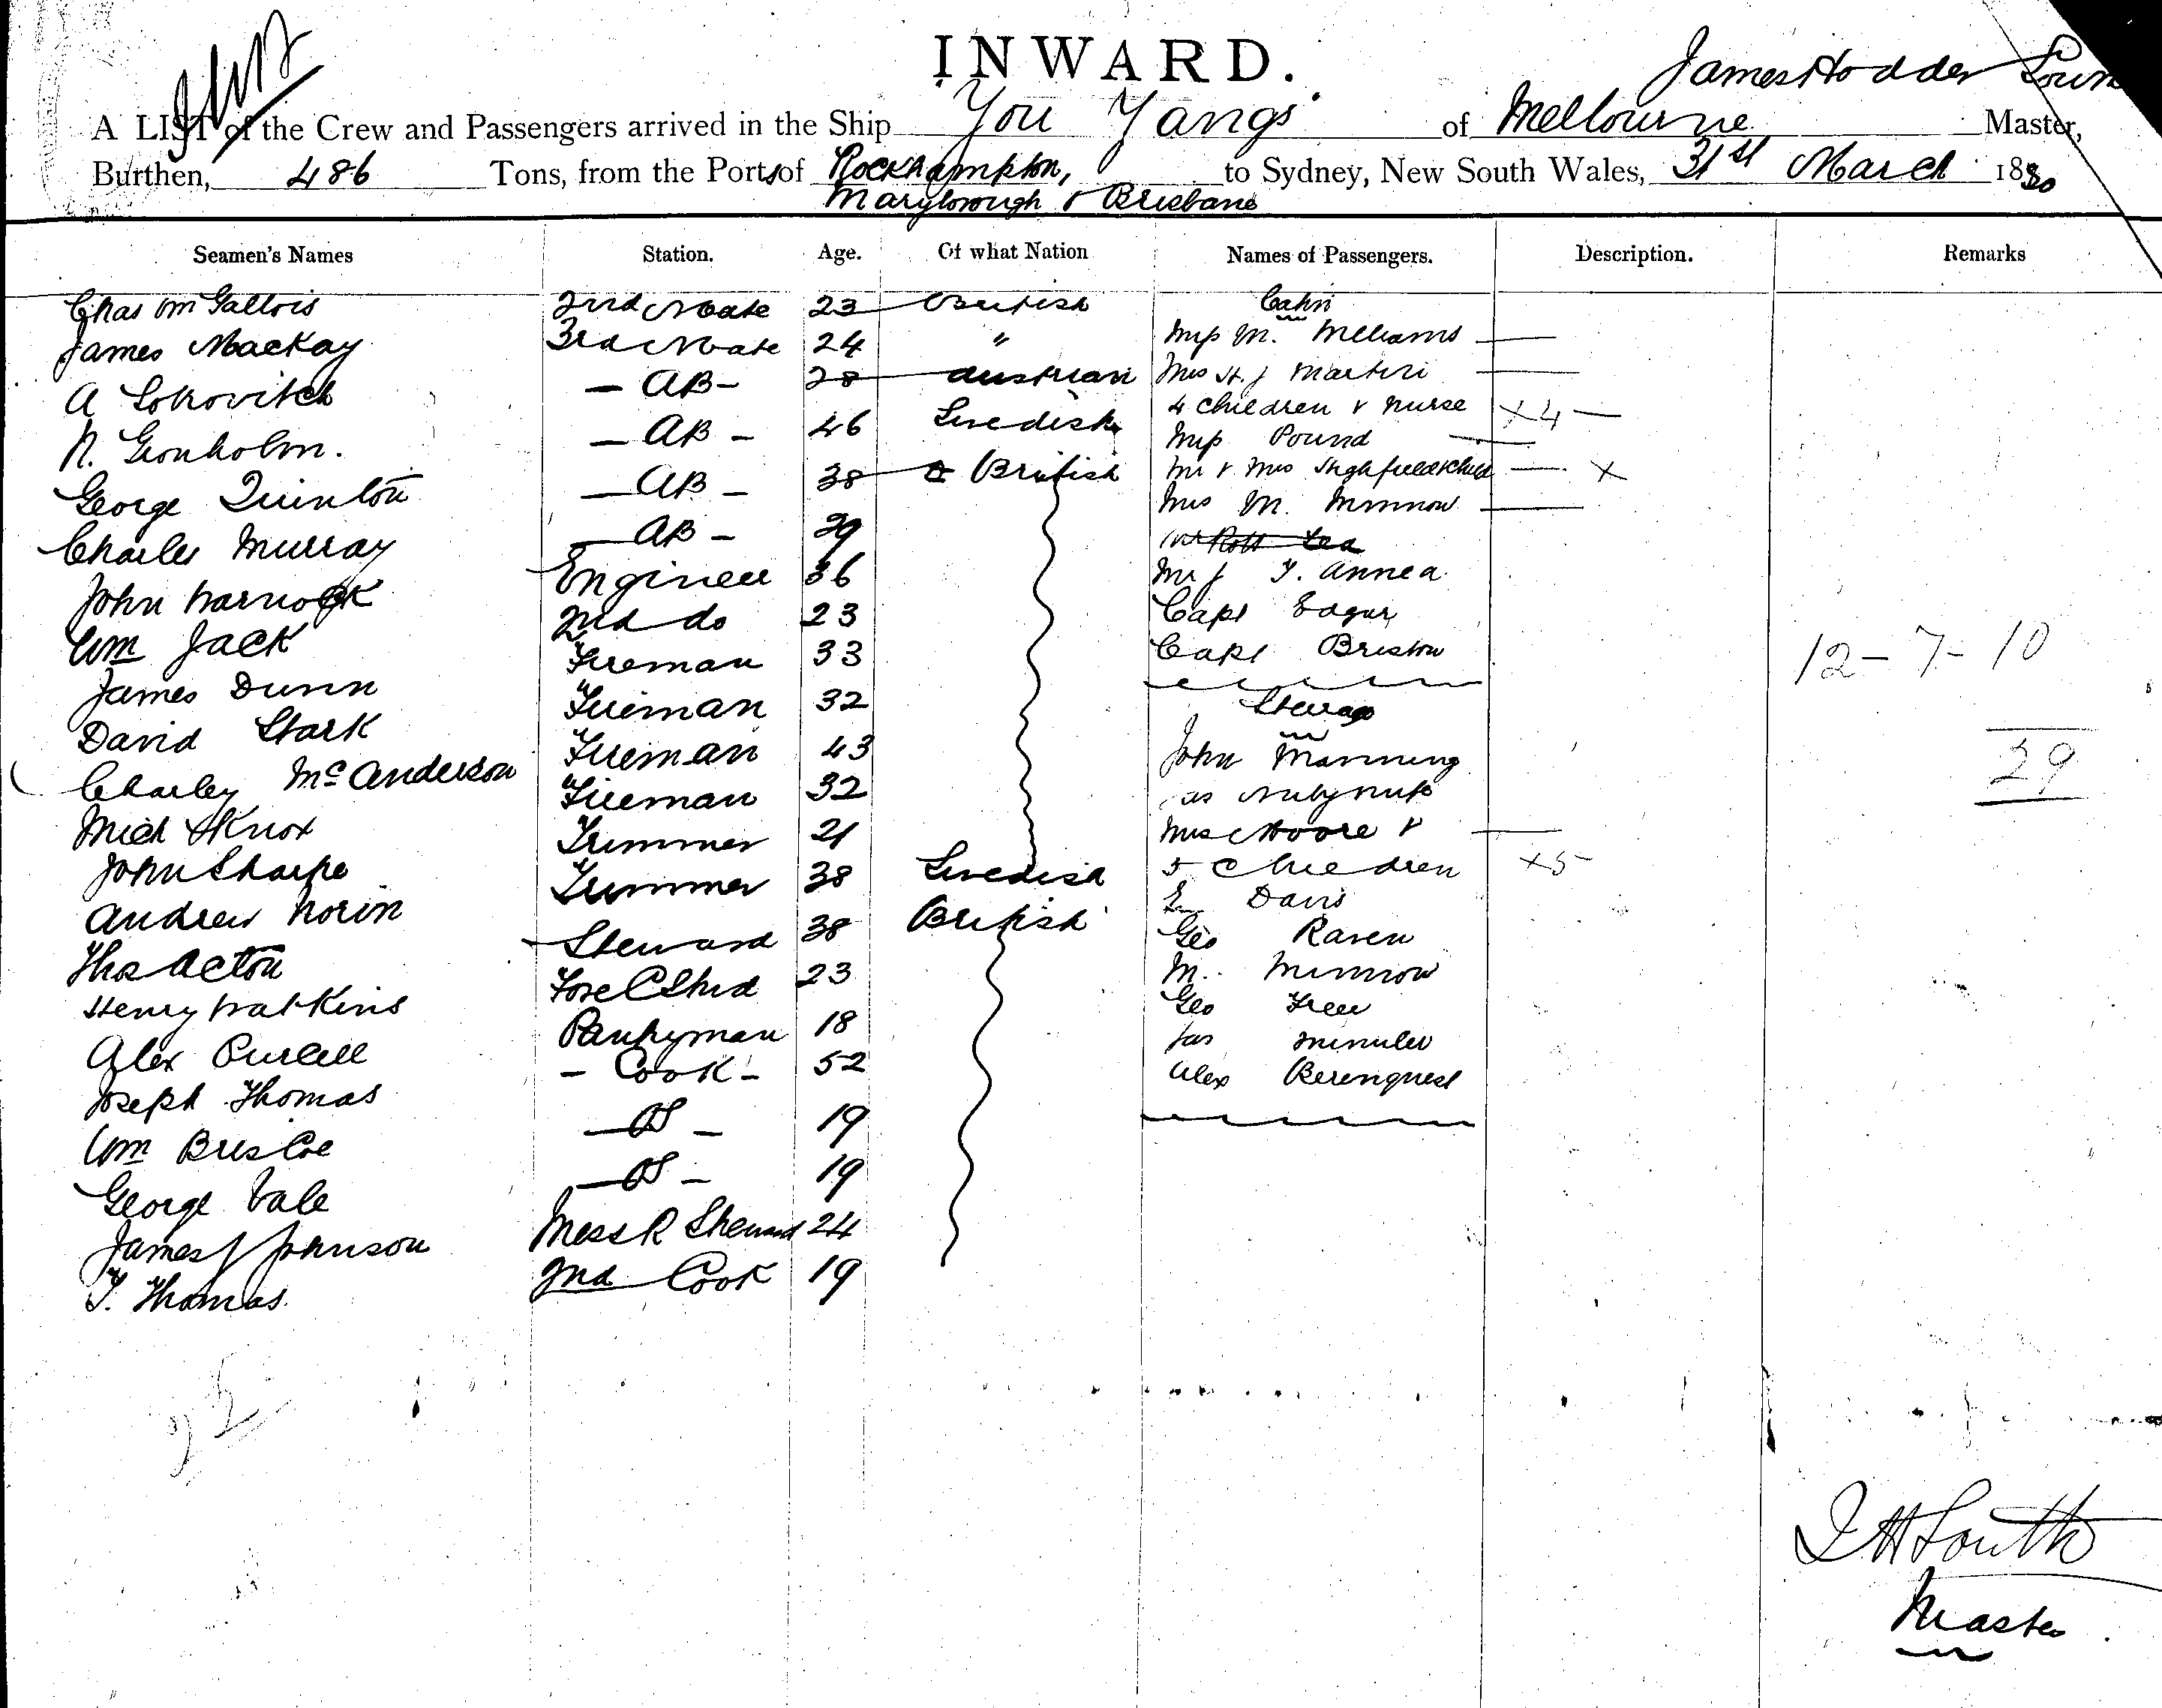 INWARD.
James Hodder South
A LIST of the Crew and Passengers arrived in the Ship You Yangs of Melbourne Master,
Burthen, 486 Tons, from the Ports of Rockhampton, to Sydney, New South Wales, 31st March 1880
Maryborough & Brisbane
Seamen's Names Station. Age. Of what Nation Names of Passengers. Description. Remarks
Chas Wm Gallois 2nd Mate 23 British Cabin
James Mackay 3rd Mate 24 " M. Williams
A AB 28 Austrian Mrs H. J Martin
N. Gronholm. AB 46 Swedish 4 children & nurse x4
Pound
George Quinton AB 38 British Mr & Mrs Highfield & child x
Charles Murray AB 39 Mrs M. Minnow
John Warnock Engineer 36 Mr J T. Annea
Wm Jack 2nd do 23 Capt Edgar
James Dunn Fireman 33 Capt Briston
12-7-10
David Stark Fireman 32 Steerage
Charley McAnderson Fireman 43 John Manning
29
Mich Knox Fireman 32
John Sharpe Trimmer 21 Mrs Moore &
Andrew Norin Trimmer 38 Swedish 5 Children x5
Thos Acton Steward 38 British Davis
Geo Raven
Henry Watkins Fore C Stwd 23 M. Minnow
Alex Purcell Pantryman 18 Geo Free
Joseph Thomas Cook 52 Jas
Alex
Wm Briscoe OS 19
George Vale OS 19
James J Johnson Mess R Steward 24
T. Thomas. 2nd Cook 19
J H South
Master